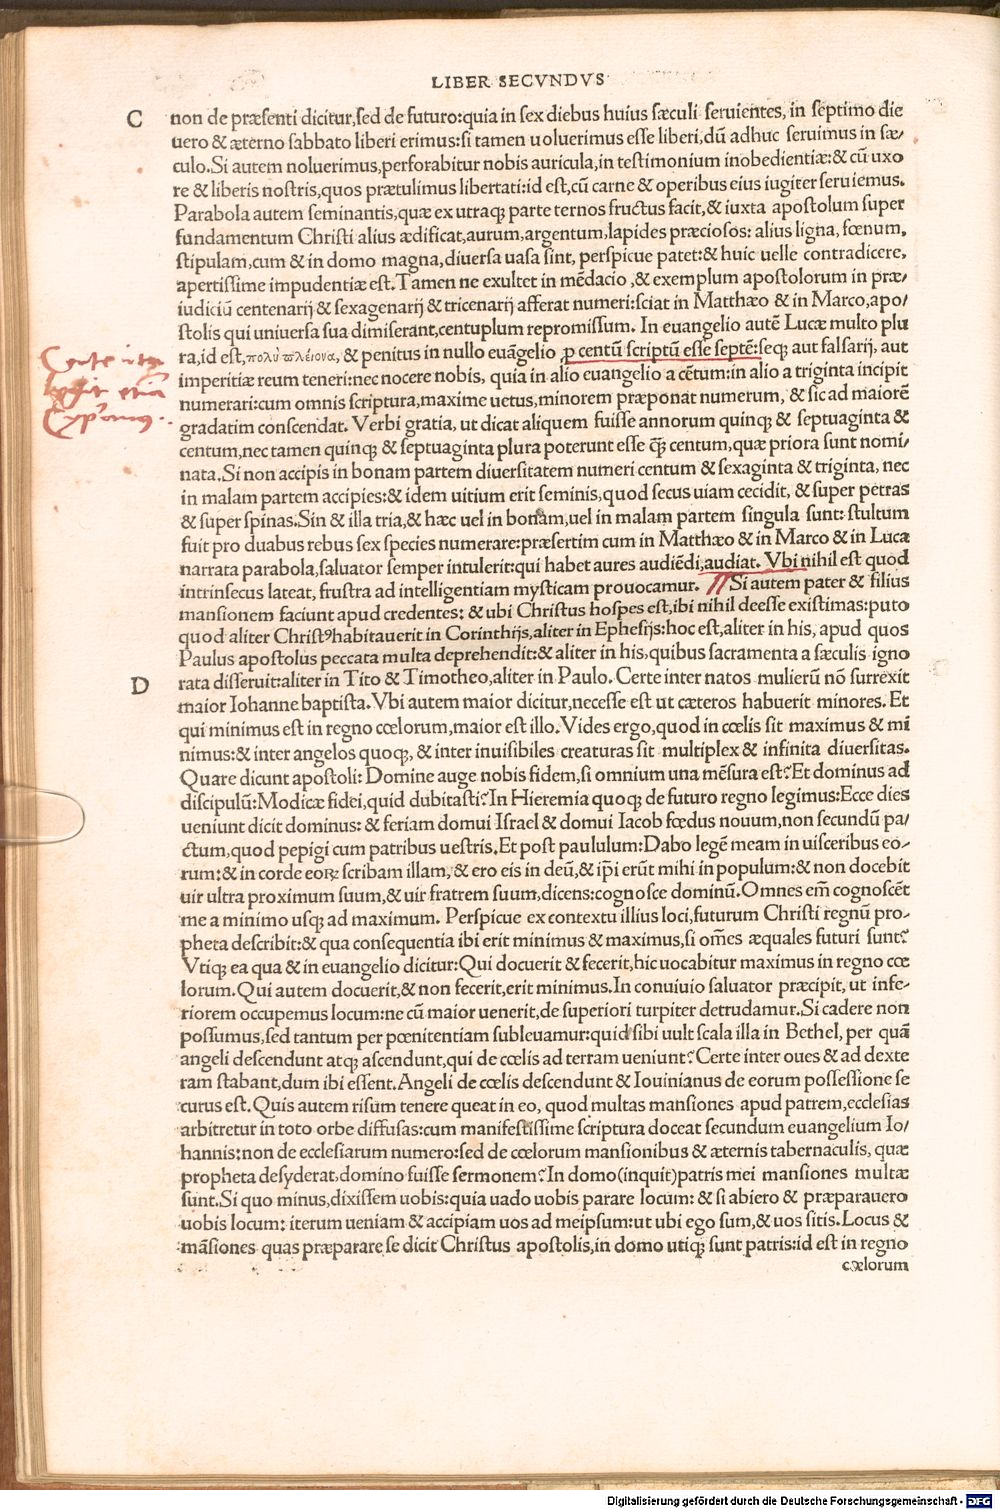 LIBER SECVNDVS
C
non de præsenti dicitur,sed de futuro:quia in sex diebus huius sæculi seruientes, in septimo die
uero & æterno sabbato liberi erimus:si tamen uoluerimus esse liberi,dũ adhuc seruimus in sæ⸗
culo.Si autem noluerimus,perforabitur nobis auricula,in testimonium inobedientiæ:& cũ uxo
re & liberis nostris,quos prætulimus libertati:id est,cũ carne & operibus eius iugiter seruiemus.
Parabola autem seminantis,quæ ex utraqꝫ parte ternos fructus facit,& iuxta apostolum super
fundamentum Christi alius ædificat,aurum,argentum,lapides præciosos: alius ligna, fœnum,
stipulam,cum & in domo magna,diuersa uasa sint, perspicue patet:& huic uelle contradicere,
apertissime impudentiæ est.Tamen ne exultet in mẽdacio ,& exemplum apostolorum in præ⸗
iudiciũ centenarij & sexagenarij & tricenarij afferat numeri:sciat in Matthæo & in Marco,apo⸗
stolis qui uniuersa sua dimiserant,centuplum repromissum. In euangelio autẽ Lucæ multo plu
ra,id est,πολὺ πλέιονα, & penitus in nullo euãgelio ꝓ centũ scriptũ esse septẽ:seqꝫ aut falsarij, aut
imperitiæ reum teneri:nec nocere nobis, quia in alio euangelio a cẽtum:in alio a triginta incipit
numerari:cum omnis scriptura,maxime uetus,minorem præponat numerum, & sic ad maiorẽ
gradatim conscendat. Verbi gratia, ut dicat aliquem fuisse annorum quinqꝫ & septuaginta &
centum,nec tamen quinqꝫ & septuaginta plura poterunt esse q̃ꝫ centum,quæ priora sunt nomi⸗
nata.Si non accipis in bonam partem diuersitatem numeri centum & sexaginta & triginta, nec
in malam partem accipies:& idem uitium erit seminis,quod secus uiam cecidit, & super petras
& super spinas.Sin & illa tria,& hæc uel in bonam,uel in malam partem singula sunt: stultum
fuit pro duabus rebus sex species numerare:præsertim cum in Matthæo & in Marco & in Luca
narrata parabola,saluator semper intulerit:qui habet aures audiẽdi,audiat. Vbi nihil est quod
intrinsecus lateat, frustra ad intelligentiam mysticam prouocamur. Si autem pater & filius
mansionem faciunt apud credentes: & ubi Christus hospes est,ibi nihil deesse existimas:puto
quod aliter Christꝰ habitauerit in Corinthijs,aliter in Ephesijs:hoc est,aliter in his, apud quos
Paulus apostolus peccata multa deprehendit:& aliter in his,quibus sacramenta a sæculis igno
D
rata disseruit:aliter in Tito & Timotheo,aliter in Paulo. Certe inter natos mulierũ nõ surrexit
maior Iohanne baptista.Vbi autem maior dicitur,necesse est ut cæteros habuerit minores. Et
qui minimus est in regno cœlorum,maior est illo. Vides ergo,quod in cœlis sit maximus & mi
nimus:& inter angelos quoqꝫ, & inter inuisibiles creaturas sit multiplex & infinita diuersitas.
Quare dicunt apostoli: Domine auge nobis fidem,si omnium una mẽsura est? Et dominus ad
discipulũ:Modicæ fidei,quid dubitasti?In Hieremia quoqꝫ de futuro regno legimus:Ecce dies
ueniunt dicit dominus: & feriam domui Israel & domui Iacob fœdus nouum,non secundũ pa⸗
ctum,quod pepigi cum patribus uestris.Et post paululum:Dabo legẽ meam in uisceribus eo⸗
rum:& in corde eorꝝ scribam illam, & ero eis in deũ,& ip̃i erũt mihi in populum:& non docebit
uir ultra proximum suum,& uir fratrem suum,dicens:cognosce dominũ.Omnes em̃ cognoscẽt
me a minimo usqꝫ ad maximum. Perspicue ex contextu illius loci,futurum Christi regnũ pro⸗
pheta describit:& qua consequentia ibi erit minimus & maximus,si om̃es æquales futuri sunt?
Vtiqꝫ ea qua & in euangelio dicitur:Qui docuerit & fecerit,hic uocabitur maximus in regno cœ
lorum.Qui autem docuerit,& non fecerit,erit minimus.In conuiuio saluator præcipit, ut infe⸗
riorem occupemus locum:ne cũ maior uenerit,de superiori turpiter detrudamur.Si cadere non
possumus,sed tantum per pœnitentiam subleuamur:quid sibi uult scala illa in Bethel, per quã
angeli descendunt atqꝫ ascendunt,qui de cœlis ad terram ueniunt? Certe inter oues & ad dexte
ram stabant,dum ibi essent.Angeli de cœlis descendunt & Iouinianus de eorum possessione se
curus est.Quis autem risum tenere queat in eo, quod multas mansiones apud patrem,ecclesias
arbitretur in toto orbe diffusas:cum manifestissime scriptura doceat secundum euangelium Io⸗
hannis:non de ecclesiarum numero:sed de cœlorum mansionibus & æternis tabernaculis, quæ
propheta desyderat,domino fuisse sermonem?In domo(inquit)patris mei mansiones multæ
sunt.Si quo minus,dixissem uobis:quia uado uobis parare locum: & si abiero & præparauero
uobis locum: iterum ueniam & accipiam uos ad meipsum:ut ubi ego sum,& uos sitis.Locus &
mãsiones quas præparare se dicit Christus apostolis,in domo utiqꝫ sunt patris:id est in regno
cœlorum
Digitalisierung gefördert durch die Deutsche Forschungsgemeinschaft - DFG